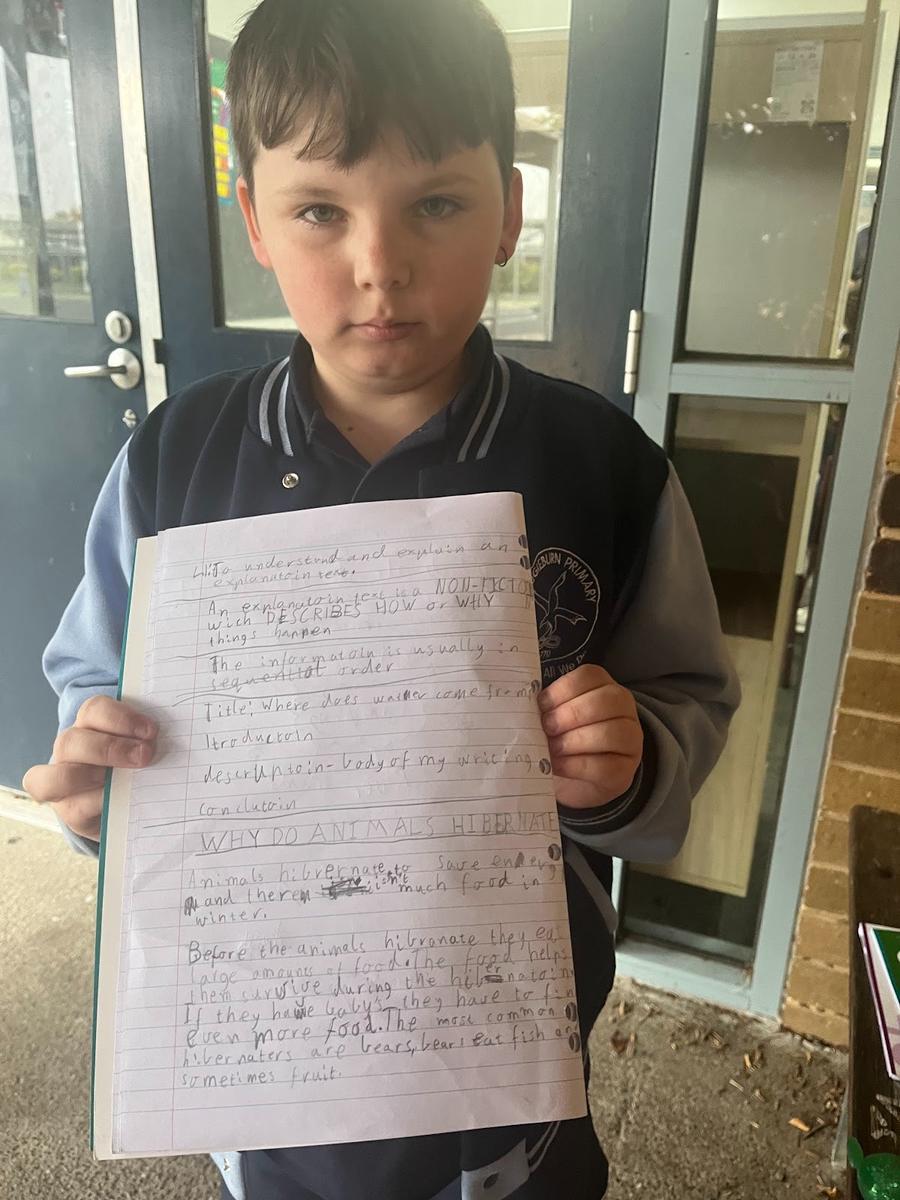 L.I: To understand and explain an
explanatoin text.
An explanatoin text is a NON-FICTON
wich DESCRIBES HOW or WHY
things happen
The informatoin is usually in
sequential order
Title: Where does water come from
Itroductoin
descriuptoin - body of my writing
conclutoin
WHY DO ANIMALS HIBERNATE
Animals hibvernate to save energ
and there isn't much food in
winter.
Before the animals hibronate they eat
large amounts of food. The food helps
them survive during the hibernatoin
If they have baby's they have to fin
even more food. The most common
hibernaters are bears, bears eat fish an
sometimes fruit.
PRIMARY
All We D